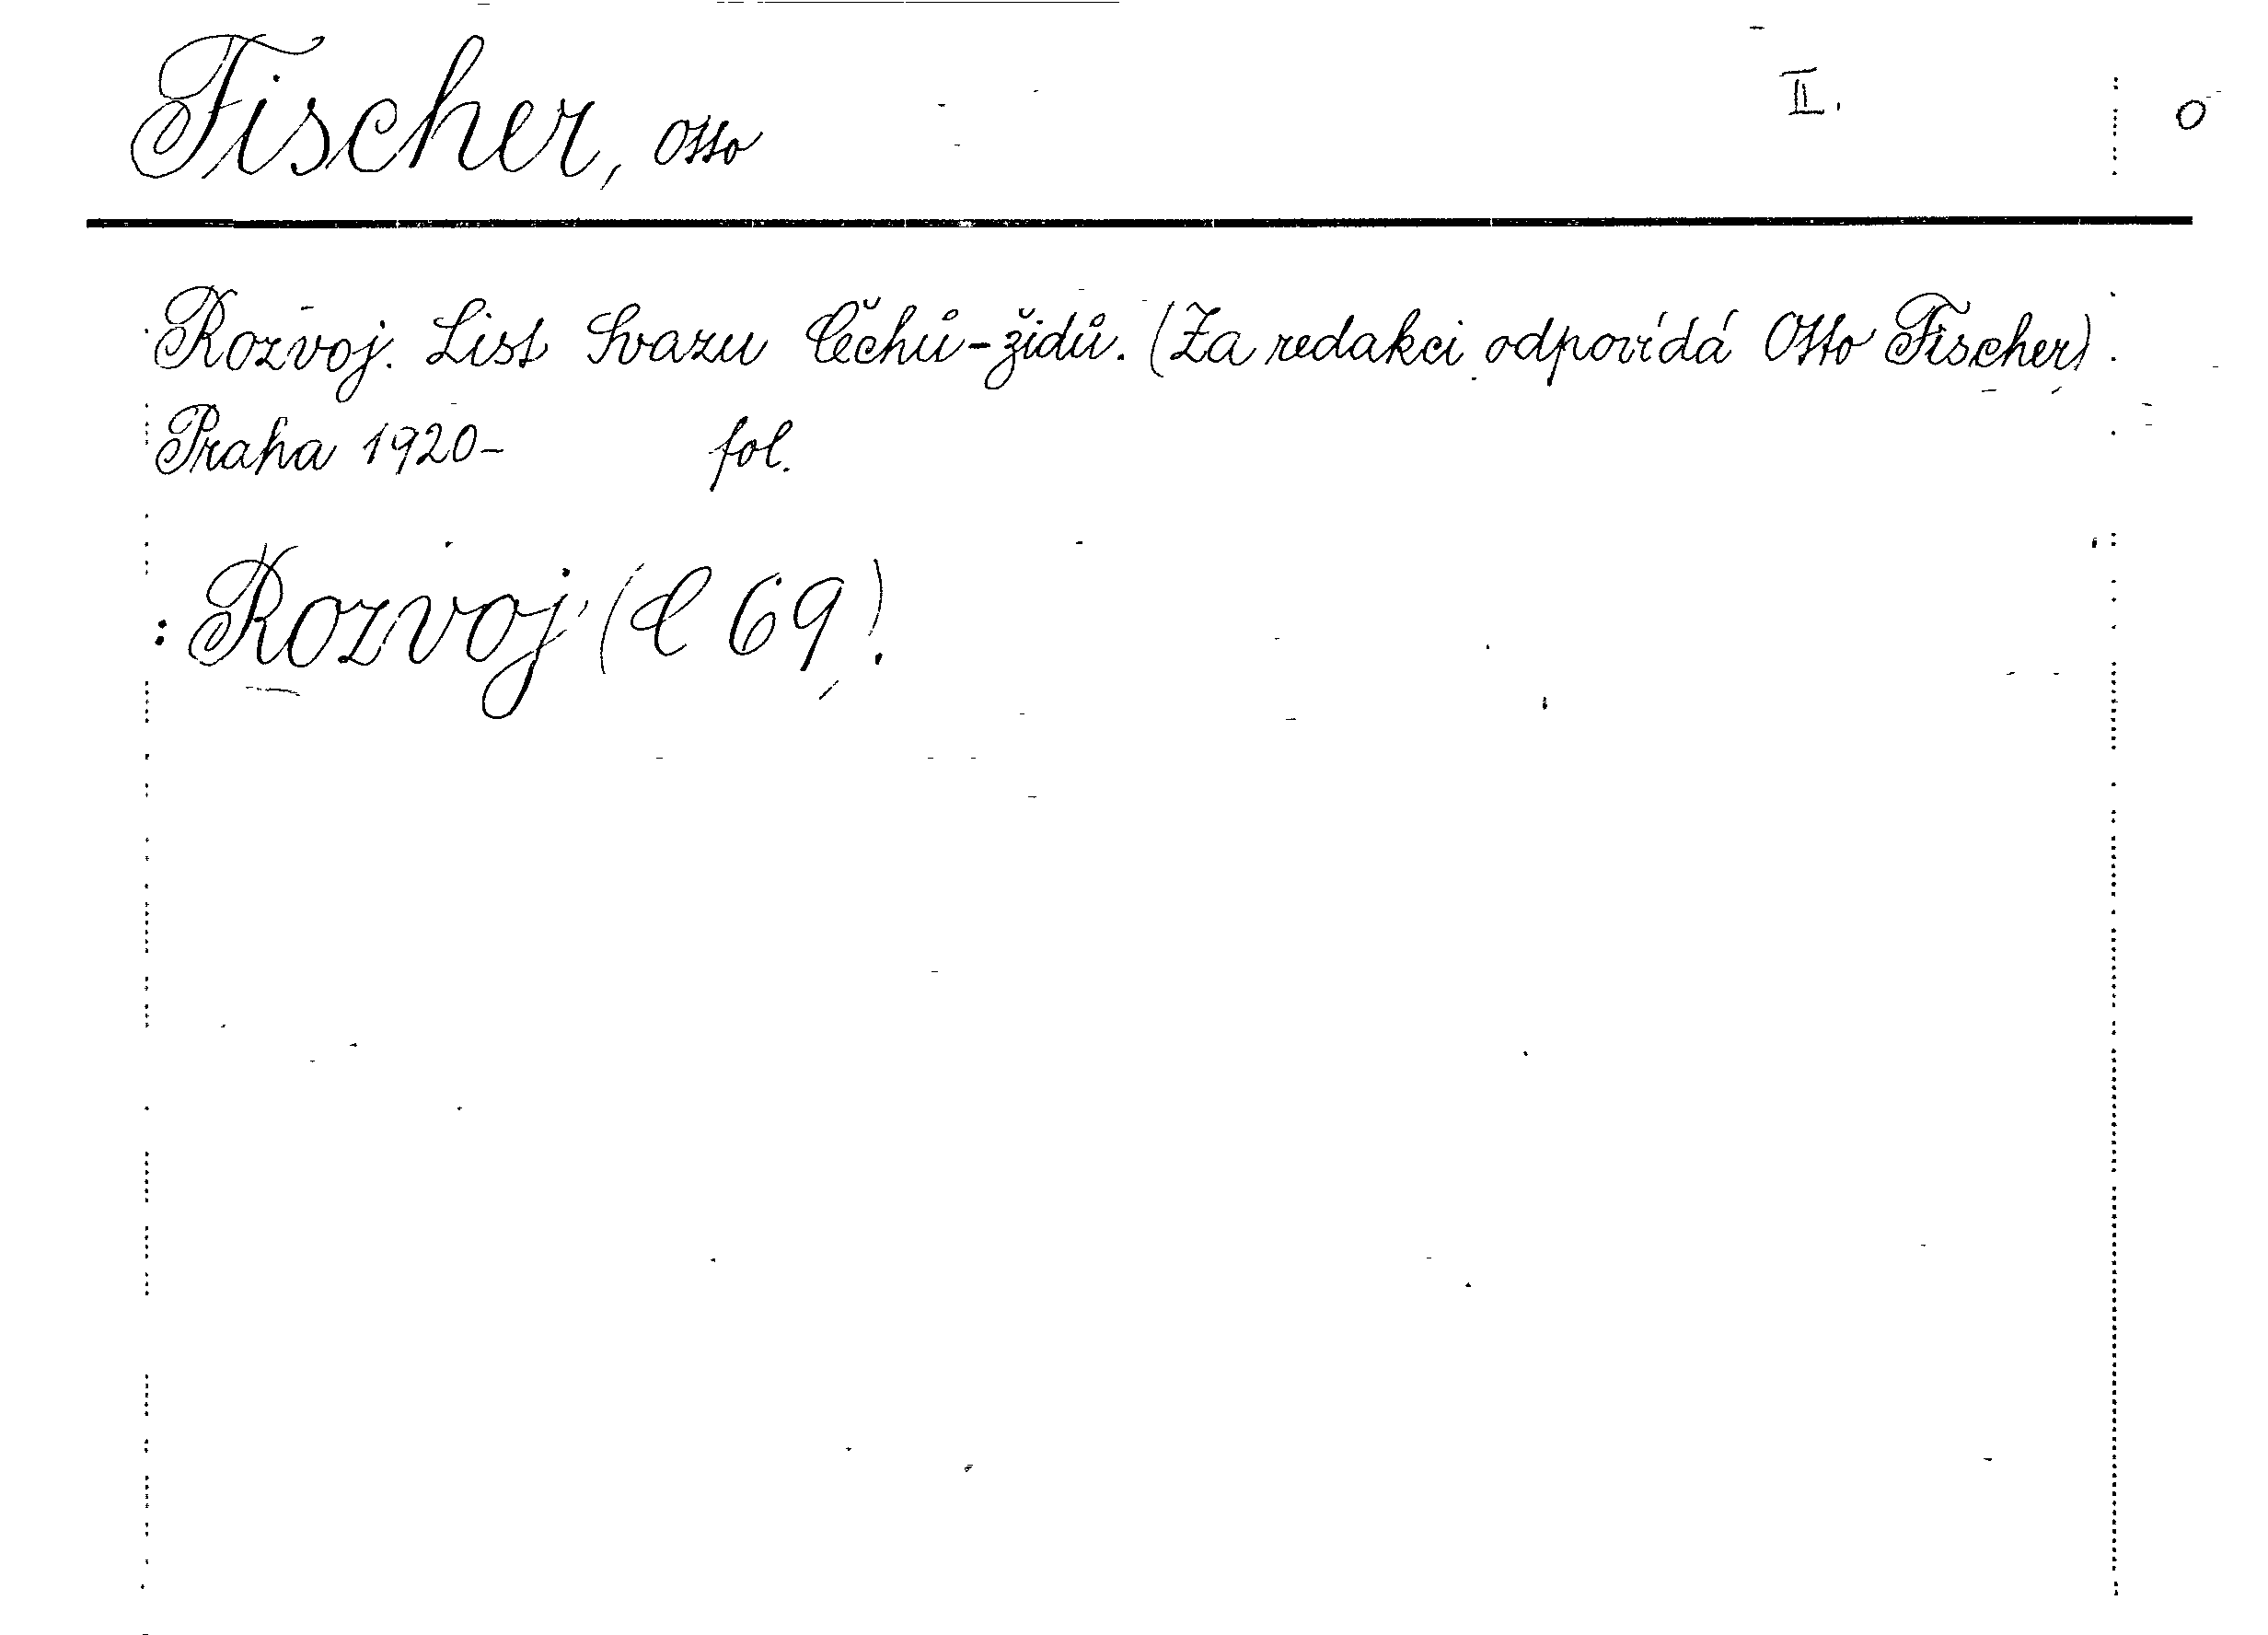 Fischer, Otto II. O
Rozvoj. List Svazu Čechů-židů. (Za redakci odpovídá Otto Fischer)
Praha 1920- fol.
: Rozvoj (C 69).